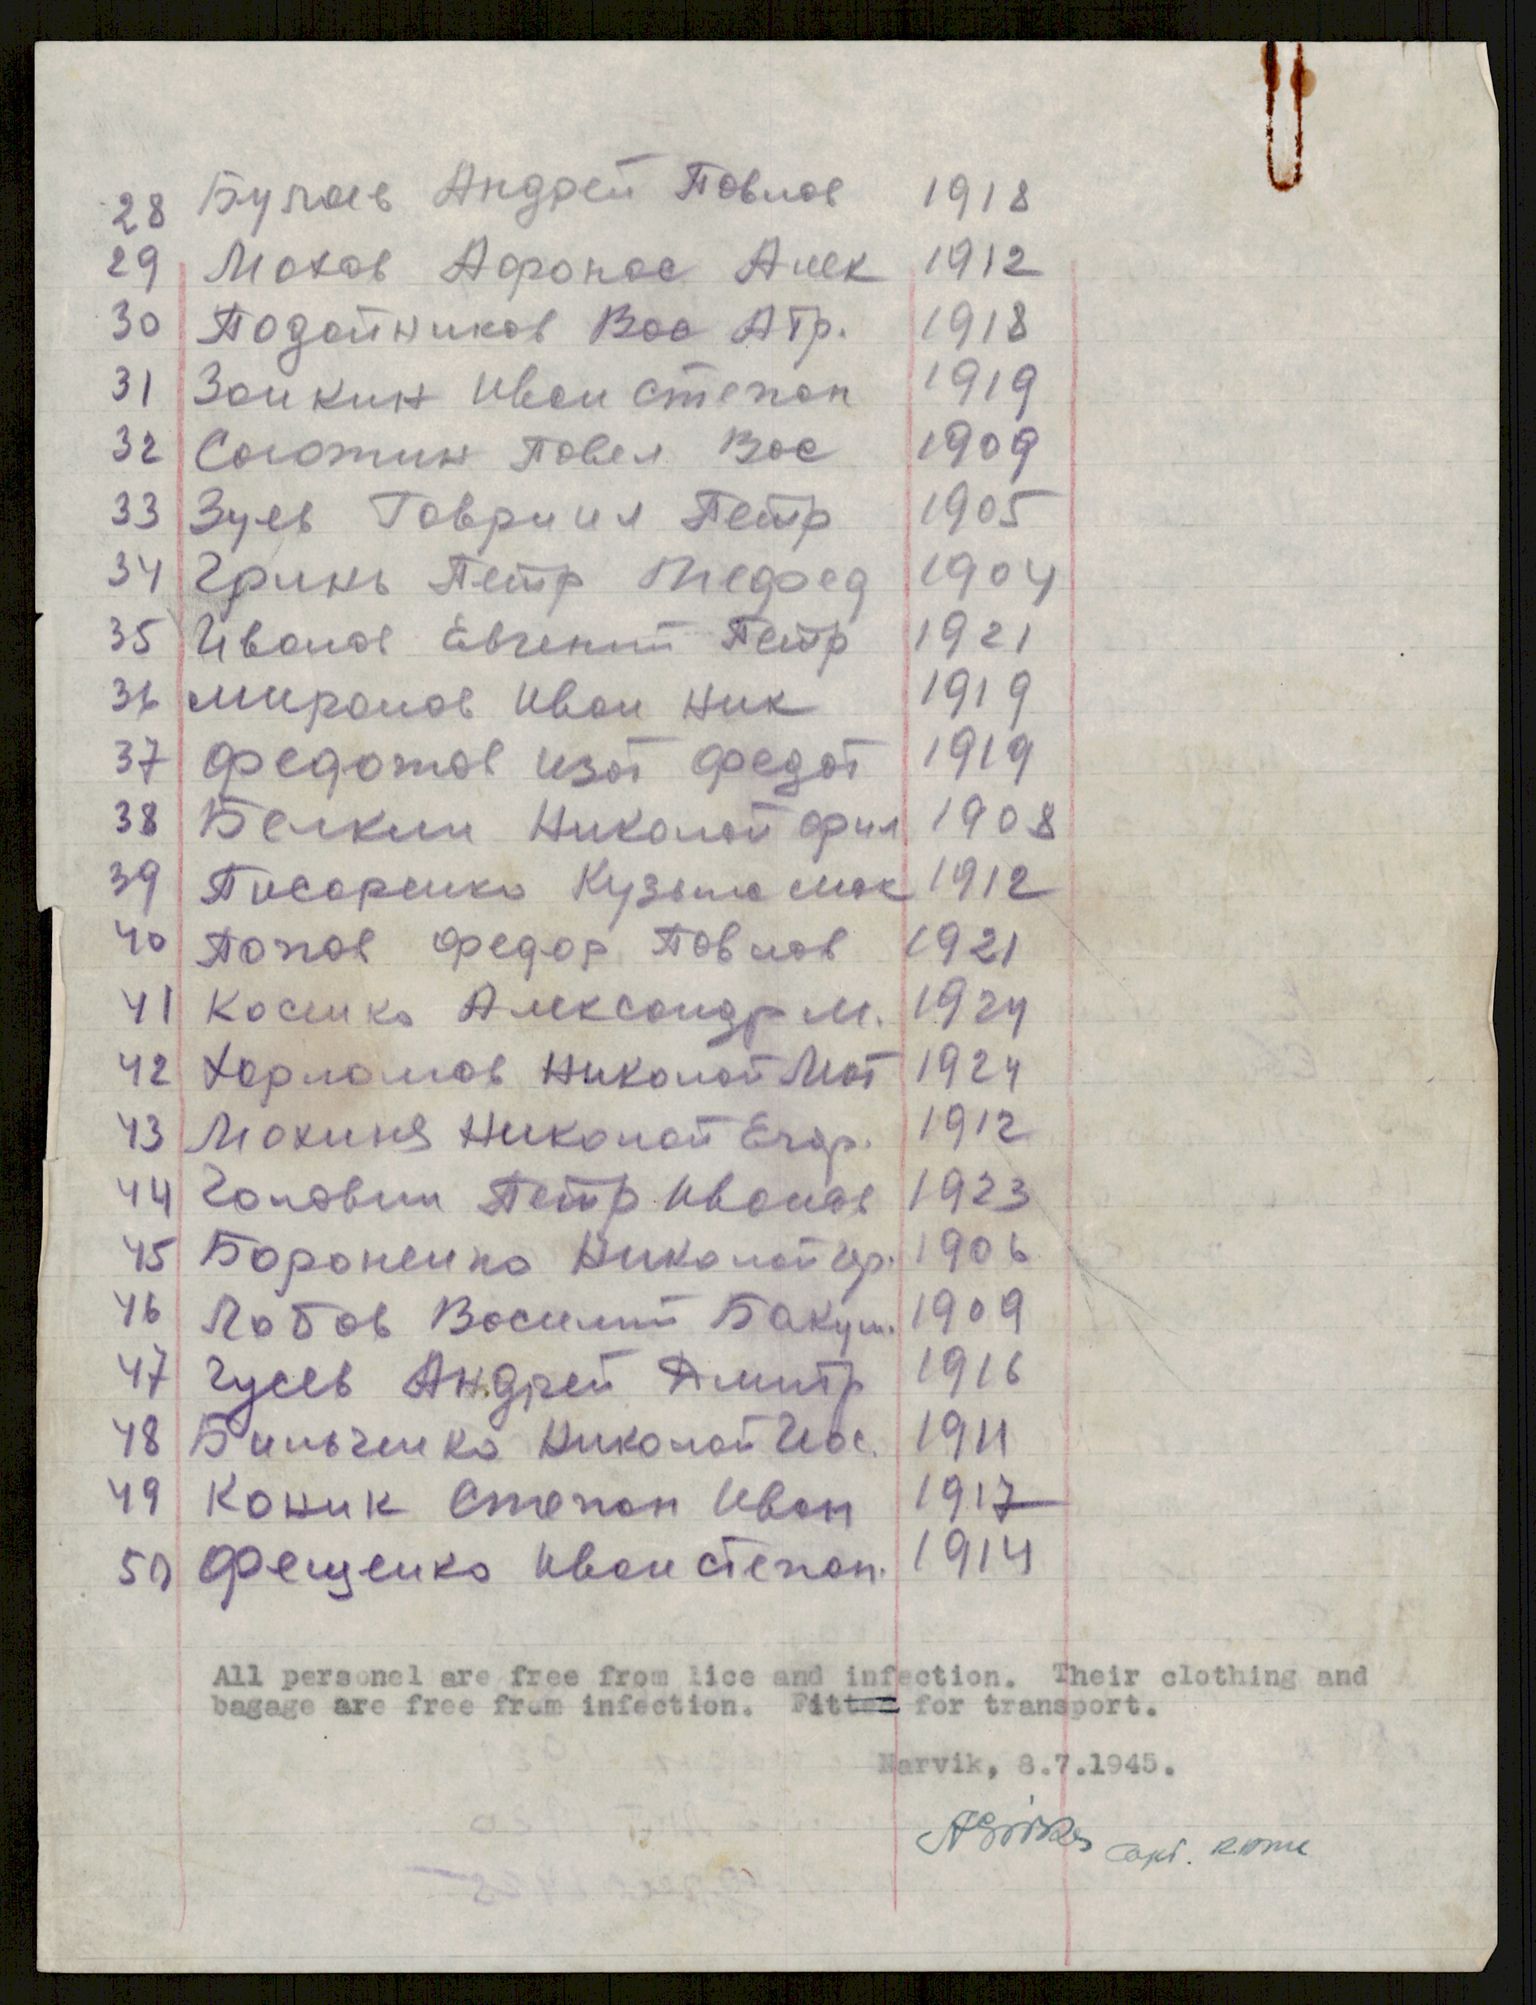 28 Бугаев Андрей Павлов 1918
29 Махов Афонас Алек 1912
30 Подойников Вас Атр. 1918
31 Заикин Иван Степан 1919
32 Павел Вас 1909
33 Зуев Гавриил Петр 1905
34 Гринь Петр Мефед 1904
35 Иванов Евгений Петр 1921
36 Миронов Иван Ник 1919
37 Федотов Изот Федот 1919
38 Белкин Николай Фил 1908
39 Писаренко Кузьма Мак 1912
40 Попов Федор Павлов 1921
41 Косенко Александр М. 1924
42 Харламов Николай Мат 1924
43 Махиня Николай Егор. 1912
44 Головин Петр Иванов 1923
45 Бароненко Николай Гр. 1906
46 Лобов Василий Бакум. 1909
47 Гусев Андрей Дмитр 1916
48 Бильченко Николай Иос. 1911
49 Коник Степан Иван 1917
50 Фещенко Иван Степан. 1914
All personel are free from lice and infection. Their clothing and
bagage are free from infection. Fitted for transport.
Narvik, 8.7.1945.
capt. RAMC